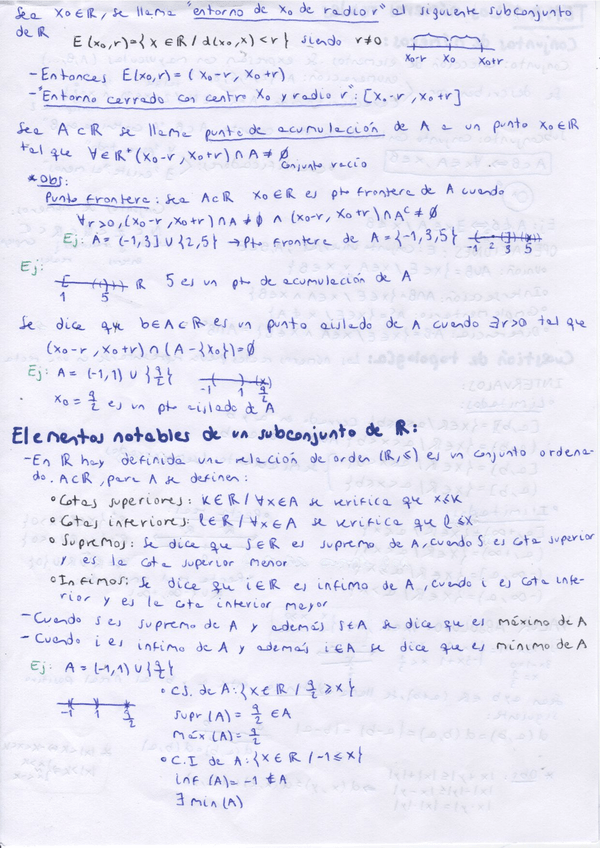 Sea X0∈ℝ, se llama "entorno de X0 de radio r" al siguiente subconjunto
de ℝ
E(x0,r)={x∈ℝ/d(x0,x)<r} siendo r≠0
x0-r x0 x0+r
- Entonces E(x0,r)=(x0-r, x0+r)
- "Entorno cerrado con centro X0 y radio r": [x0-r, x0+r]
Sea A⊂ℝ se llama punto de acumulación de A a un punto X0∈ℝ
tal que ∀∈ℝ⁺(x0-r, x0+r)∩A≠∅
Conjunto vacio
* Obs:
Punto frontera: Sea A⊂ℝ X0∈ℝ es pto frontera de A cuando
∀r>0, (x0-r, x0+r)∩A≠∅ ∧ (x0-r, x0+r)∩Aᶜ≠∅
Ej: A=(-1,3]∪{2,5} → Pto frontera de A={-1,3,5}
-1 2 3 5
Ej:
ℝ 5 es un pto de acumulación de A
1 5
Se dice que b∈A⊂ℝ es un punto aislado de A cuando ∃r>0 tal que
(x0-r, x0+r)∩(A-{x0})=∅
Ej: A=(-1,1)∪{9/2}
-1 1 9/2
x0=9/2 es un pto aislado de A
Elementos notables de un subconjunto de ℝ:
- En ℝ hay definida una relación de orden (ℝ,≤) es un conjunto ordena-
do. A⊂ℝ, para A se definen:
° Cotas superiores: K∈ℝ/∀x∈A se verifica que x≤K
° Cotas inferiores: l∈ℝ/∀x∈A se verifica que l≤x
° Supremos: Se dice que S∈ℝ es supremo de A, cuando S es cota superior
y es la cota superior menor
° Infimos: Se dice que i∈ℝ es infimo de A, cuando i es cota infe-
rior y es la cota inferior mayor
- Cuando s es supremo de A y además s∈A se dice que es máximo de A
- Cuando i es infimo de A y además i∈A se dice que es mínimo de A
Ej: A=(-1,1)∪{9/2}
-1 1 9/2
° C.S. de A: {x∈ℝ/9/2≥x}
supr(A)=9/2∈A
máx(A)=9/2
° C.I de A: {x∈ℝ/-1≤x}
inf(A)=-1∉A
∄ min(A)